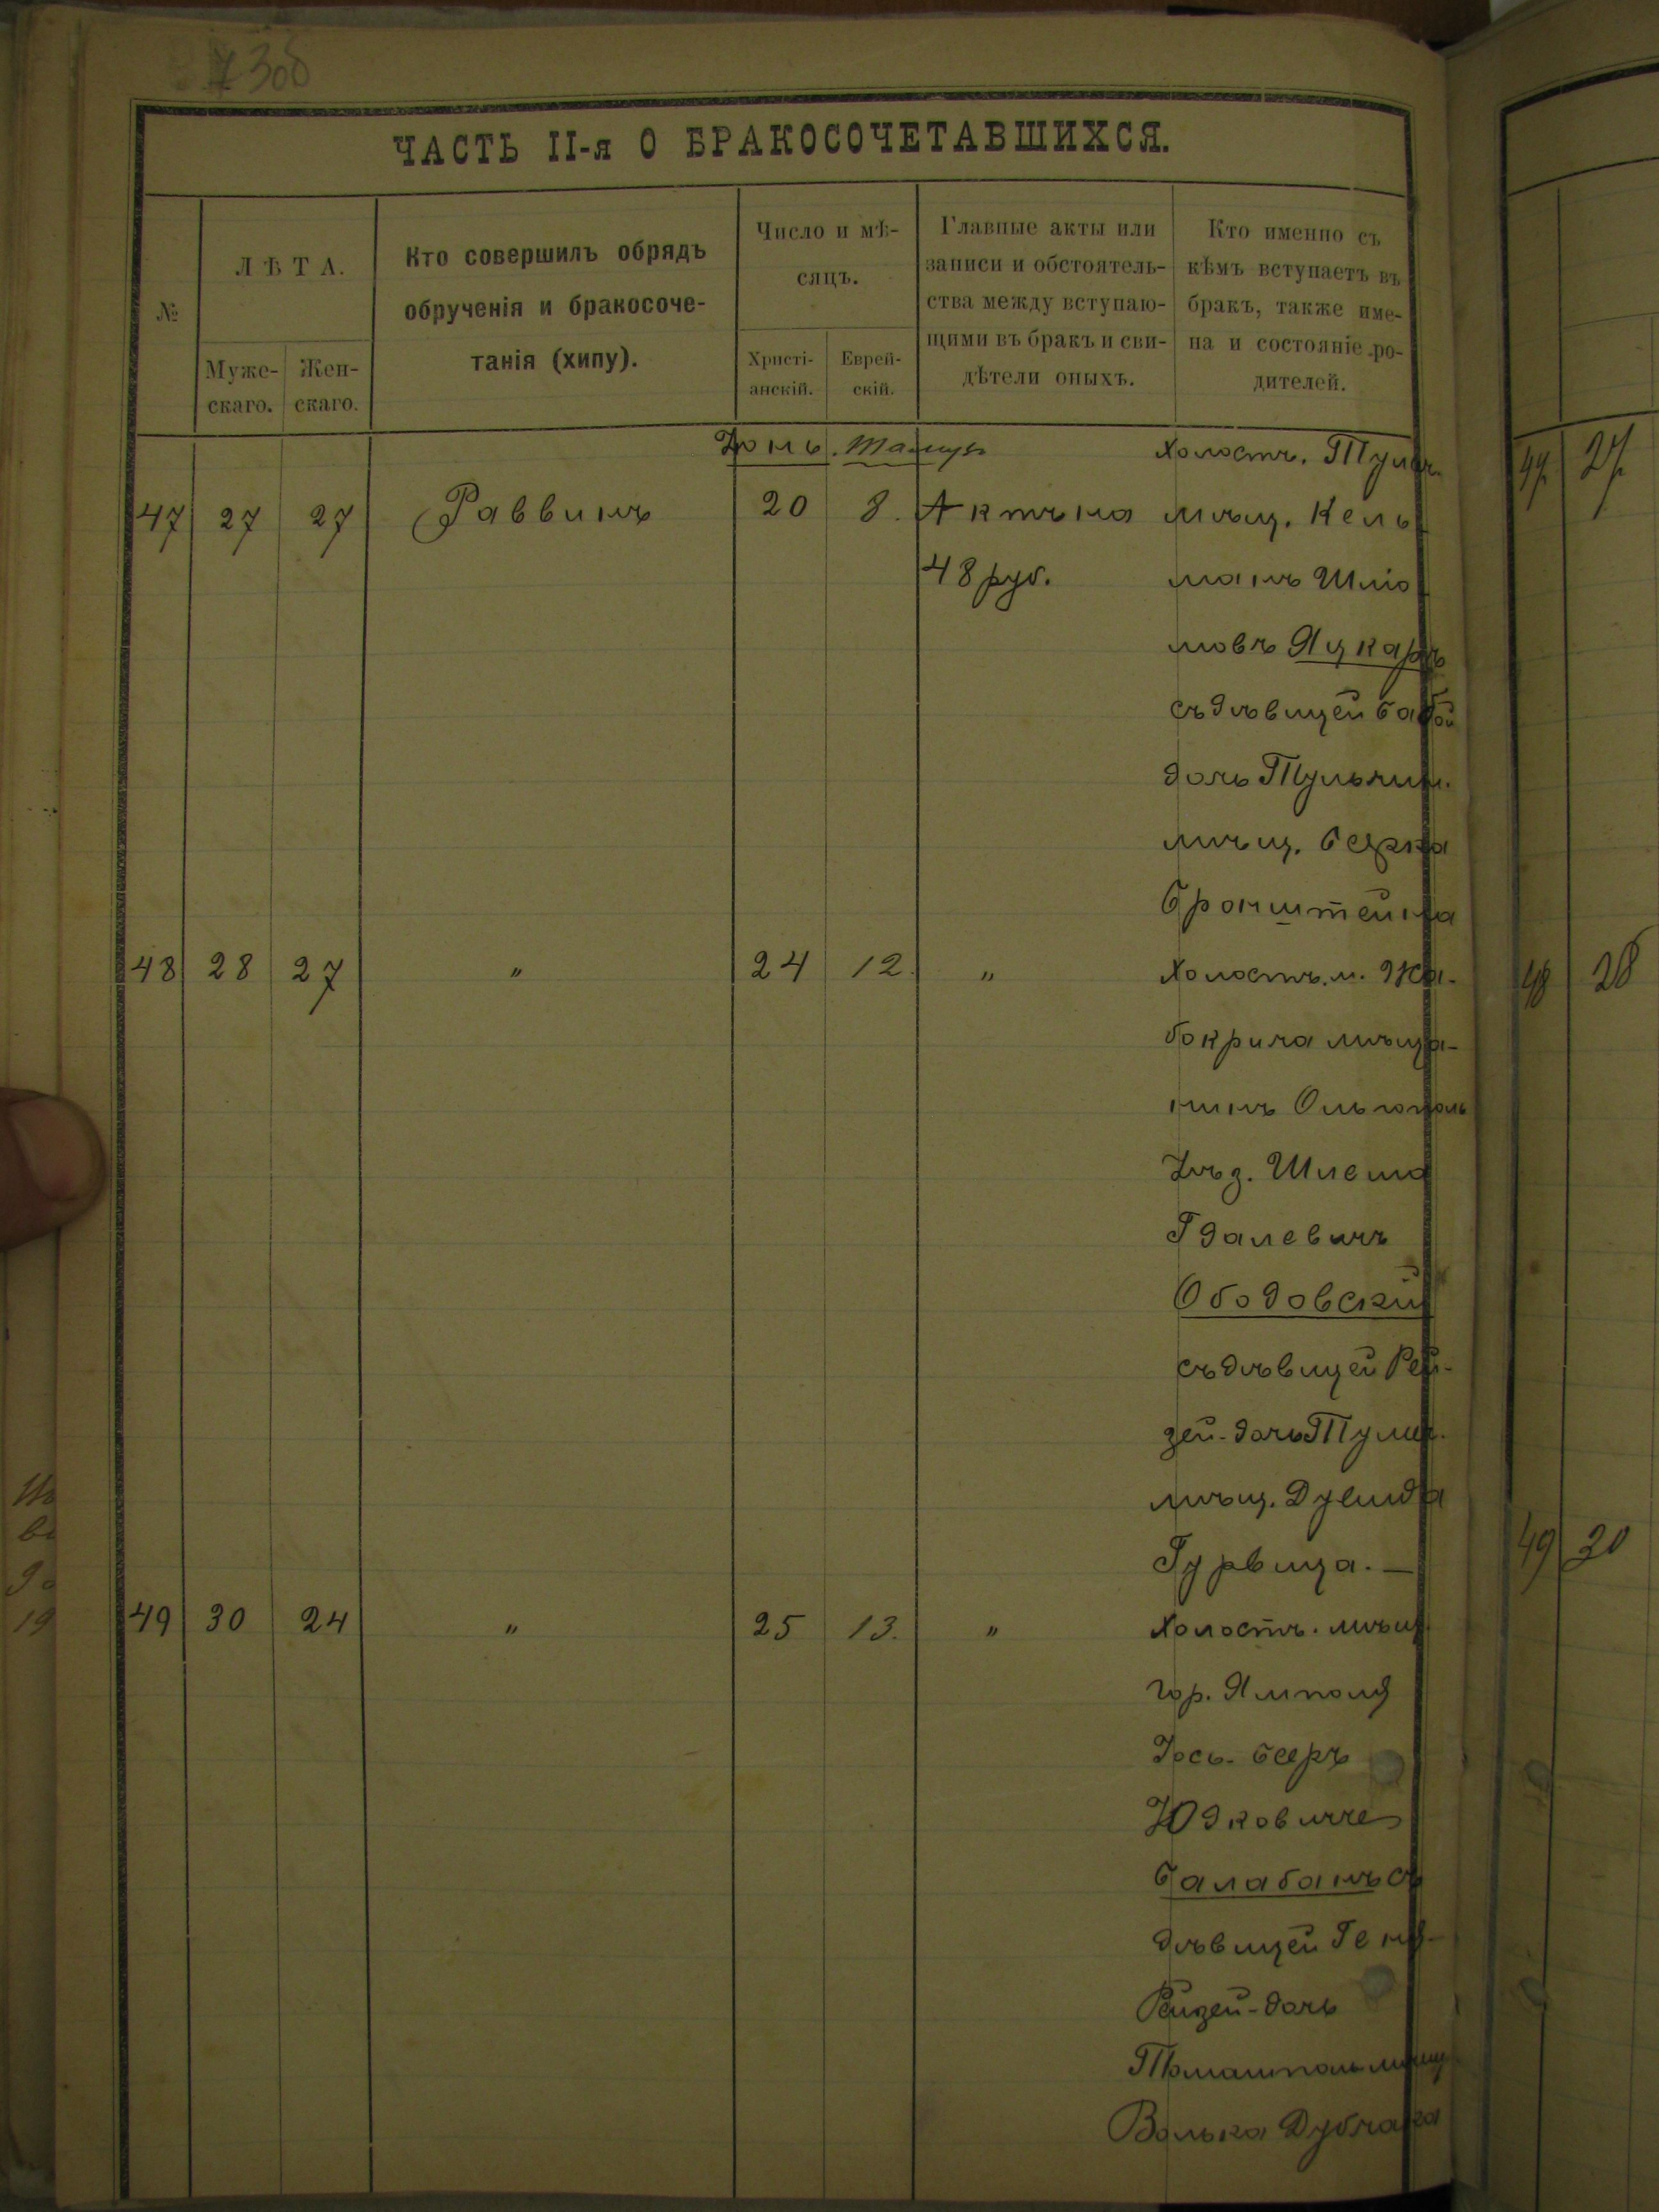 ЧАСТЬ II-я О БРАКОСОЧЕТАВШИХСЯ.
№
ЛѢТА.
Муже-
скаго.
Жен-
скаго.
Кто совершилъ обрядъ
обрученія и бракосоче-
танія (хипу).
Число и мѣ-
сяцъ.
Христі-
анскій.
Еврей-
скій.
Главные акты или
записи и обстоятель-
ства между вступаю-
щими въ бракъ и сви-
дѣтели оныхъ.
Кто именно съ
кѣмъ вступаетъ въ
бракъ, также име-
на и состояніе ро-
дителей.
Іюнь. Тамузъ Холостъ. Тульч.
47 27 27 Раввинъ 20 8. Актъ на мѣщ. Кель
48 руб. манъ Шлiо
мовъ Яцкаръ
съ дѣвицей Бабой
дочь Тульчин.
мѣщ. Берка
Бронштейна
48 28 27 " 24 12. " Холостъ. м. Жа-
бокрича мѣща-
нинъ Ольгополь
Уѣз. Шлема
Гдалевичъ
Ободовскій
съ дѣвицей Рей-
зей-дочь Тульч.
мѣщ. Дувида
Гурвица. —
49 30 24 " 25 13. " Холостъ. мѣщ.
гор. Ямполя
Іось-Беръ
Юдковичъ
Балабанъ съ
дѣвицей Геня-
Рейзей-дочь
Томашполь мѣщ
Волька Дубчака
47 27
48 28
49 30